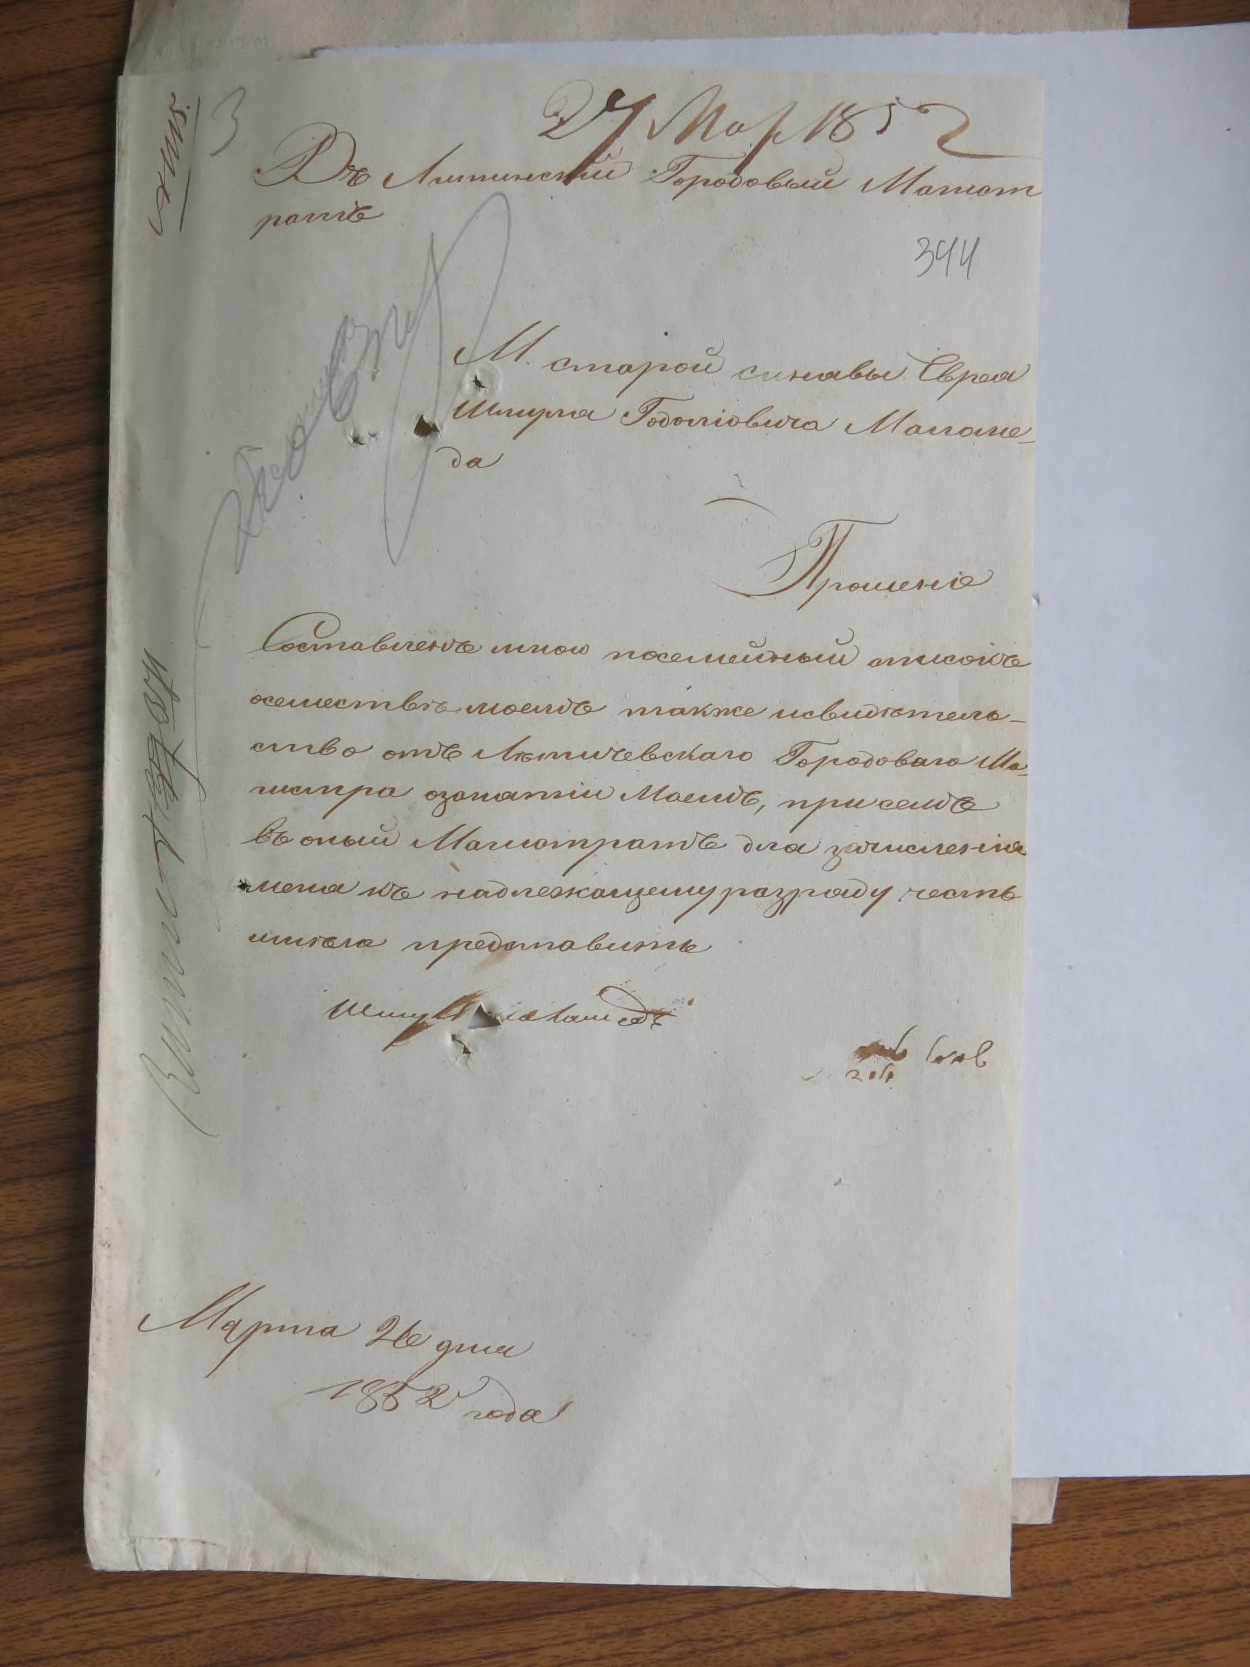 27 Мар 1852
3
Въ Литинскій Городовый Магист
ратъ
344
М. старой синявы Еврея
Шмуля Годолiовича Маламе-
да
Прошеніе
Составленъ мною посемейный список
осемействѣ моемъ также исвидѣтель-
ство отъ Летичевскаго Городоваго Ма-
гистра озанятіи Моемъ, при семъ
въ оный Магистратъ для зачисленія
меня къ надлежащему разряду честь
имѣю представить
Марта 26 дня
1852 года